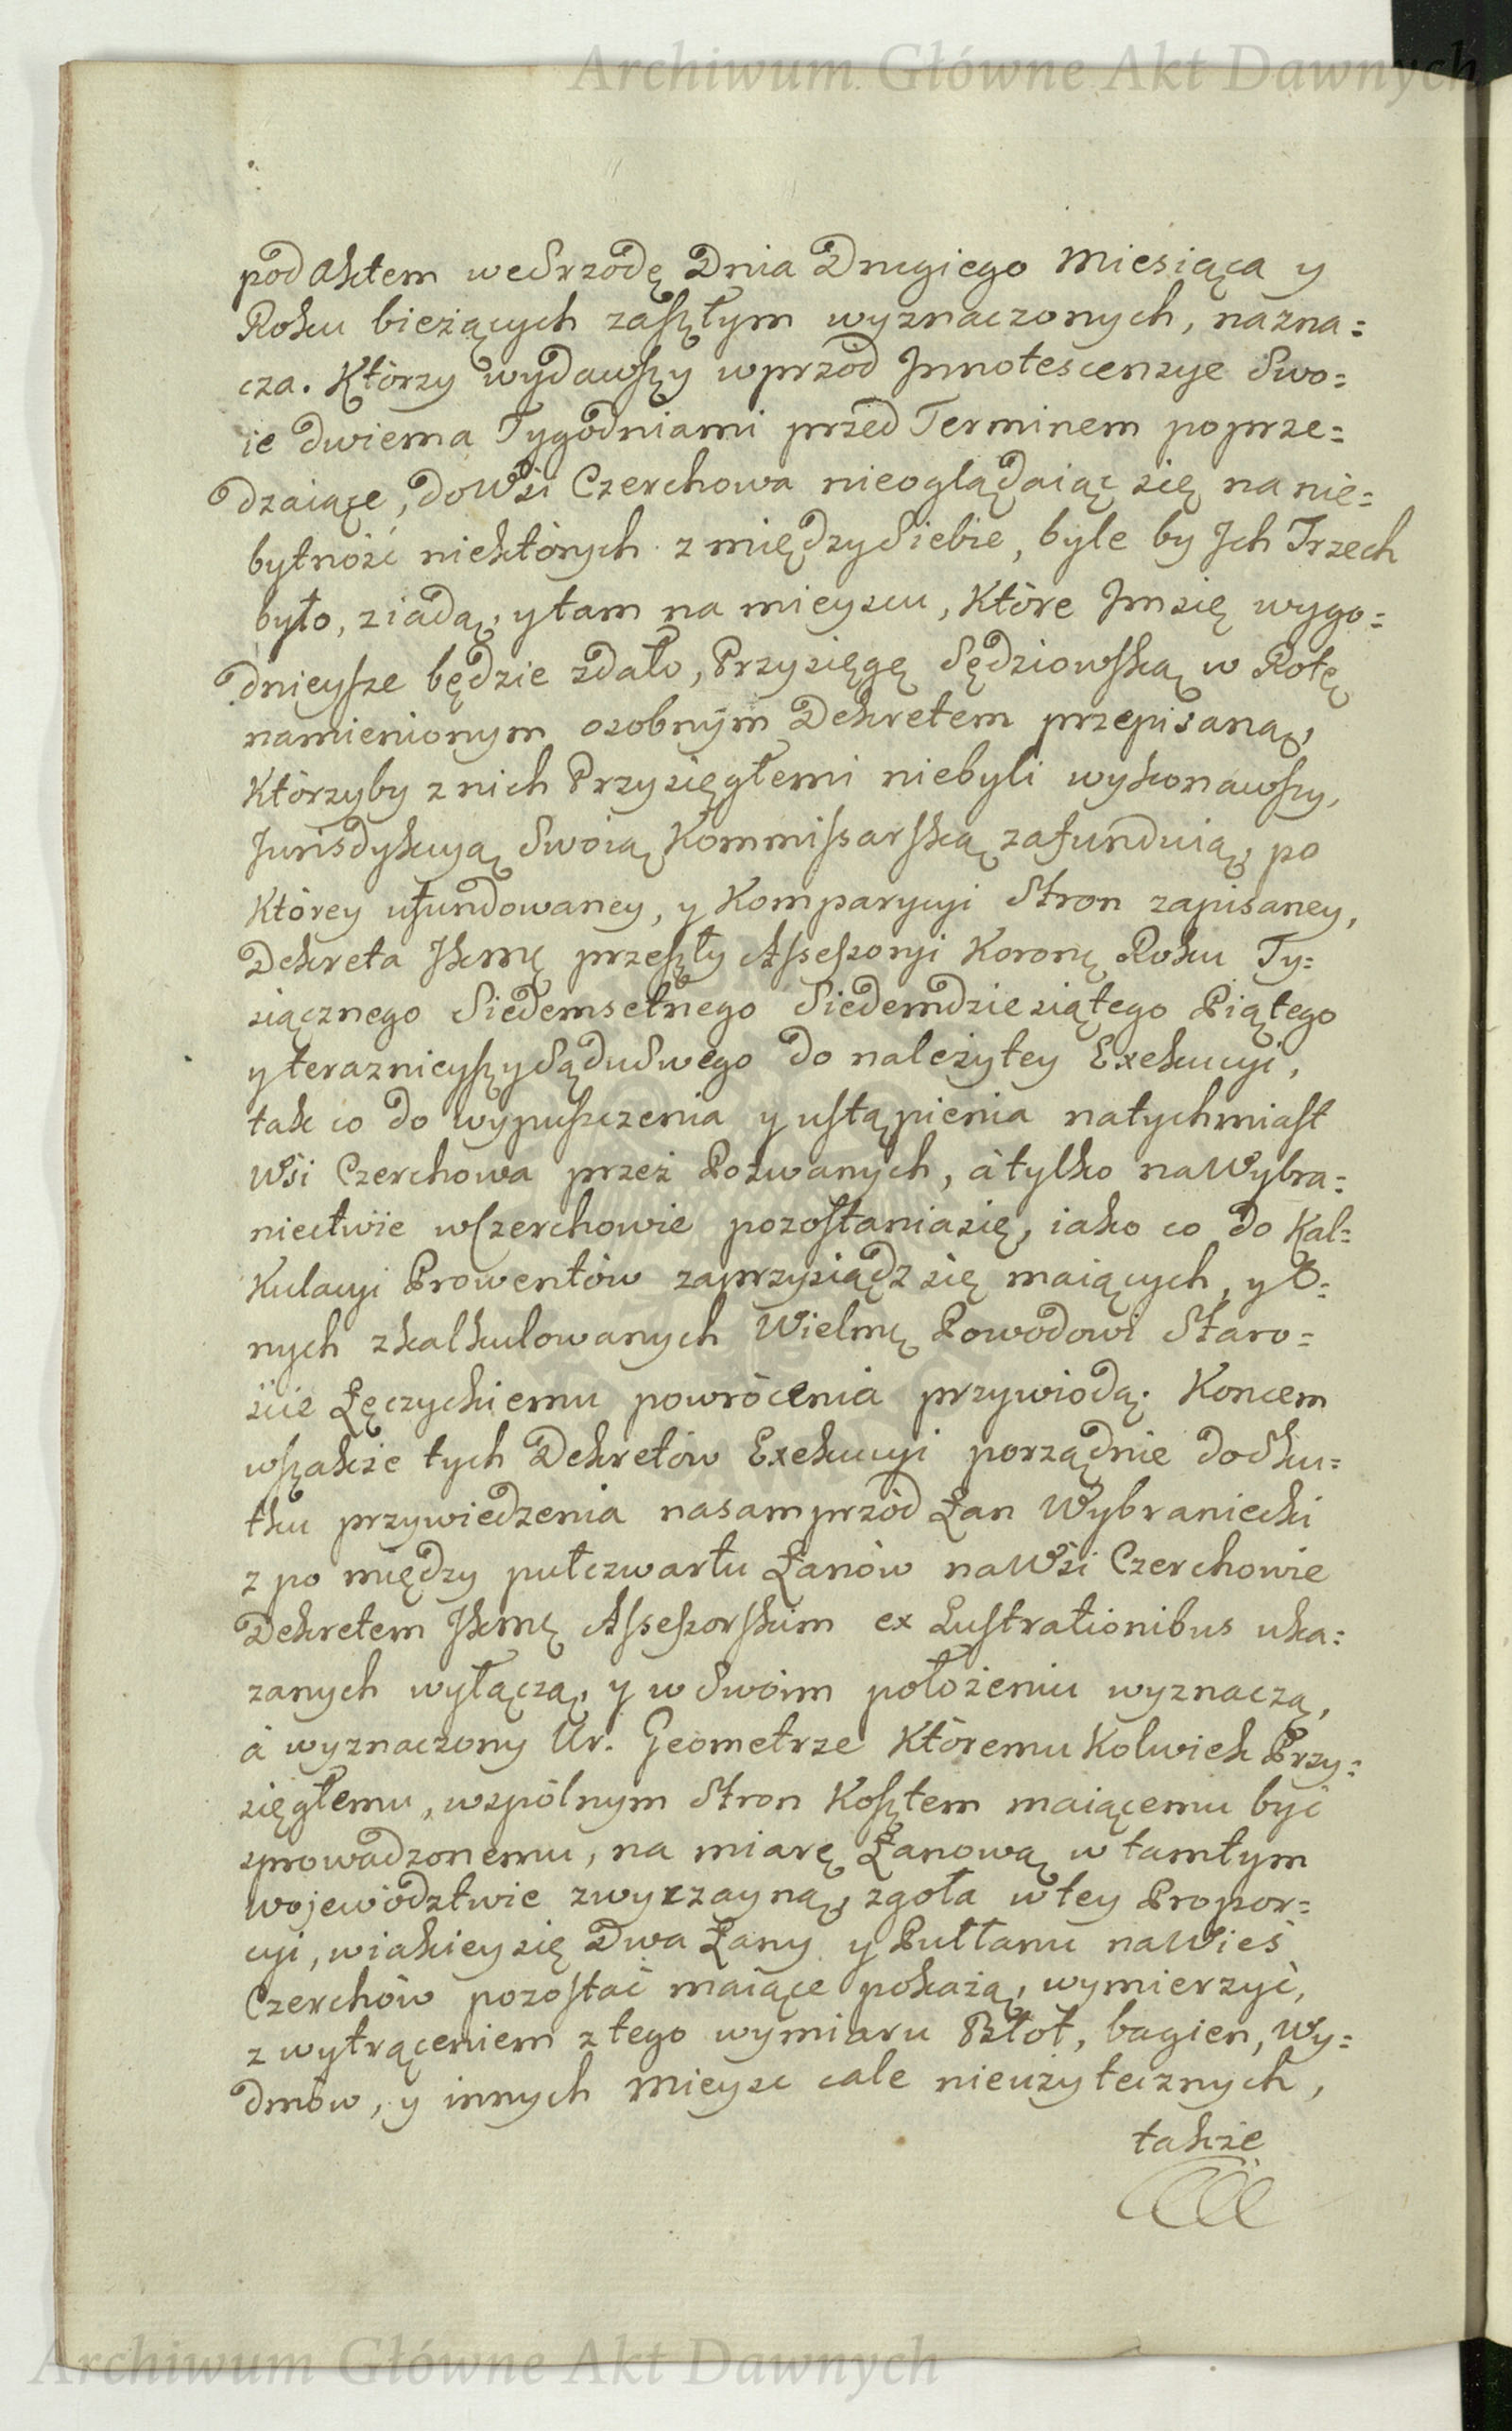 Archiwum Główne Akt Dawnych
pod Aktem we Srzodę Dnia Drugiego Miesiąca y
Roku bieżących zaszłym wyznaczonych, nazna=
cza. Którzy wydawszy wprzód Innotescensye Swo=
ie dwiema Tygodniami przed Terminem poprze=
dzaiące, do Wsi Czerchowa nieoglądaiąc się na nie=
bytność niektórych z między Siebie, byle by Ich Trzech
było, ziadą, y tam na mieyscu, Które Im się wygo=
dnieysze będzie zdało, Przysięgę Sędziowską w Rotę
namienionym osobnym Dekretem przepisaną,
Którzyby z nich Przysięgłemi niebyli wykonawszy,
Jurisdykcyą Swoią Kommissarską zafunduią, po
Którey ufundowaney, y Komparycyi Stron zapisaney,
Dekreta Jkmę przeszły Assessoryi Koronę Roku Ty=
siącznego Siedemsetnego Siedemdziesiątego Piątego
y teraznieyszy Sądu Swego do należytey Exekucyi,
tak co do wypuszczenia y ustąpienia natychmiast
Wsi Czerchowa przez Pozwanych, à tylko na Wybra=
niectwie w Czerchowie pozostania się, iako co do Kal=
kulacyi Prowentów zaprzysiądz się maiących, y O=
nych zkalkulowanych Wielmę Powodowi Staro=
ście Łęczyckiemu powrócenia przywiodą. Koncem
wszakże tych Dekretów Exekucyi porządnie do Sku=
tku przywiedzenia nasamprzód Łan Wybraniecki
z po między pułczwartu Łanów na Wsi Czerchowie
Dekretem Jkmę Assessorskim ex Lustrationibus uka=
zanych wyłączą, y w Swoim położeniu wyznaczą,
à wyznaczony Ur. Geometrze Któremu Kolwiek Przy=
sięgłemu, wspólnym Stron Kosztem maiącemu być
sprowadzonemu, na miarę Łanową w tamtym
Województwie zwyczayną, zgoła w tey Propor=
cyi, w iakiey się Dwa Łany y Pułłanu na Wieś
Czerchów pozostać maiące pokażą, wymierzyć,
z wytrąceniem z tego wymiaru Błot, bagien, Wy=
dmów, y innych Mieysc cale nieużytecznych,
także
Archiwum Główne Akt Dawnych